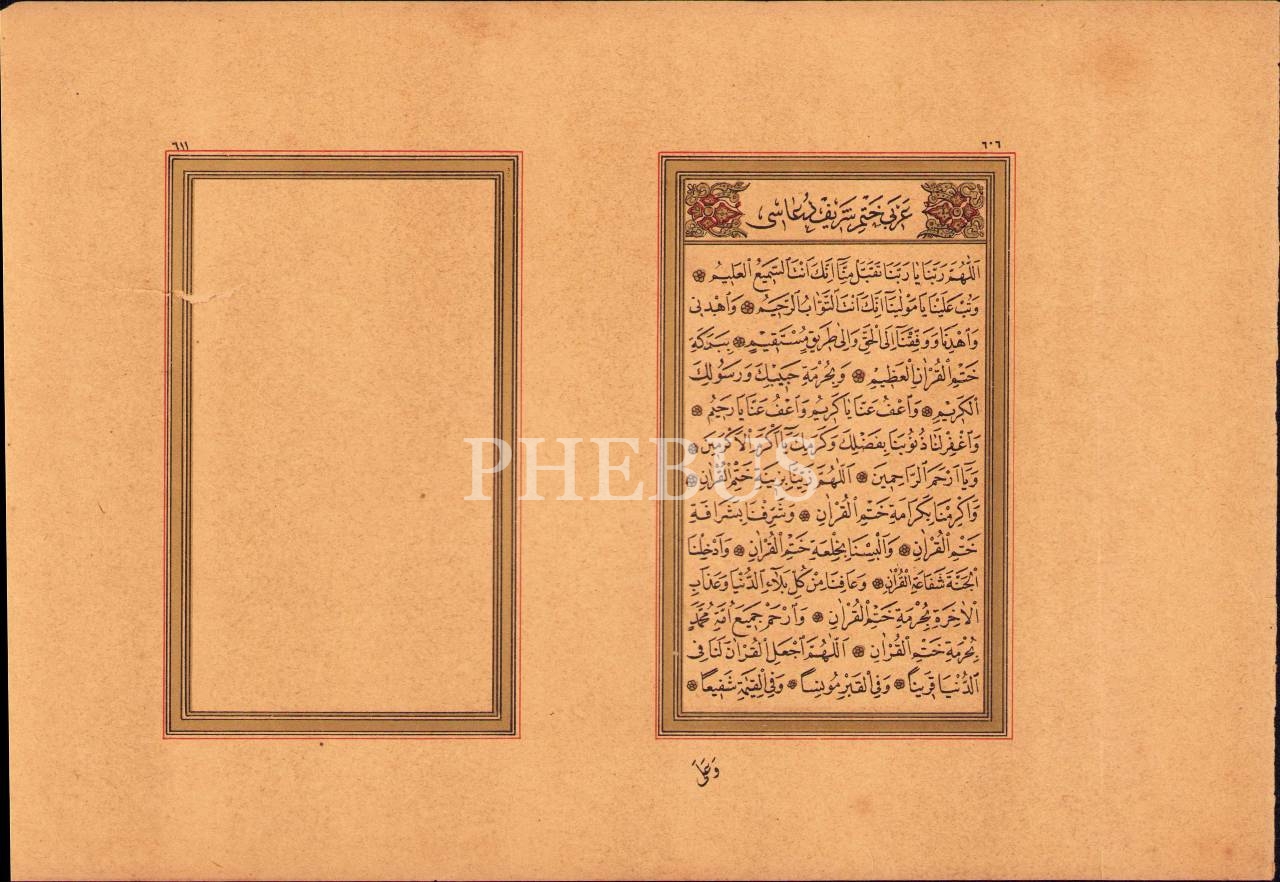 ٦٠٦
عَرَبِى خَتْمِ شَرِيفْ دُعَاسِى
اَللّٰهُمَّ رَبَّنَا يَا رَبَّنَا تَقَبَّلْ مِنَّٓا اِنَّكَ اَنْتَ السَّمِيعُ الْعَلِيمُ ۞
وَتُبْ عَلَيْنَا يَا مَوْلٰينَٓا اِنَّكَ اَنْتَ التَّوَّابُ الرَّحِيمُ ۞ وَاهْدِنٖى
وَاهْدِنَا وَوَفِّقْنَٓا اِلَى الْحَقِّ وَاِلٰى طَرِيقٍ مُسْتَقِيمٍ ۞ بِبَرَكَةِ
خَتْمِ الْقُرْاٰنِ الْعَظِيمِ ۞ وَبِحُرْمَةِ حَبِيبِكَ وَرَسُولِكَ
الْكَرِيمِ ۞ وَاعْفُ عَنَّا يَا كَرِيمُ وَاعْفُ عَنَّا يَا رَحِيمُ ۞
وَاغْفِرْ لَنَا ذُنُوبَنَا بِفَضْلِكَ وَكَرَمِكَ يَٓا اَكْرَمَ الْاَكْرَمِينَ ۞
وَيَٓا اَرْحَمَ الرَّاحِمِينَ ۞ اَللّٰهُمَّ زَيِّنَّا بِزِينَةِ خَتْمِ الْقُرْاٰنِ ۞
وَاَكْرِمْنَا بِكَرَامَةِ خَتْمِ الْقُرْاٰنِ ۞ وَشَرِّفْنَا بِشَرَافَةِ
خَتْمِ الْقُرْاٰنِ ۞ وَاَلْبِسْنَا بِخِلْعَةِ خَتْمِ الْقُرْاٰنِ ۞ وَاَدْخِلْنَا
الْجَنَّةَ بِشَفَاعَةِ الْقُرْاٰنِ ۞ وَعَافِنَا مِنْ كُلِّ بَلَٓاءِ الدُّنْيَا وَعَذَابِ
الْاٰخِرَةِ بِحُرْمَةِ خَتْمِ الْقُرْاٰنِ ۞ وَارْحَمْ جَمِيعَ اُمَّةِ مُحَمَّدٍ
بِحُرْمَةِ خَتْمِ الْقُرْاٰنِ ۞ اَللّٰهُمَّ اجْعَلِ الْقُرْاٰنَ لَنَا فِى
الدُّنْيَا قَرِينًا ۞ وَفِى الْقَبْرِ مُونِسًا ۞ وَفِى الْقِيٰمَةِ شَفِيعًا ۞
وَعَلَى
٦١١
PHEBUS